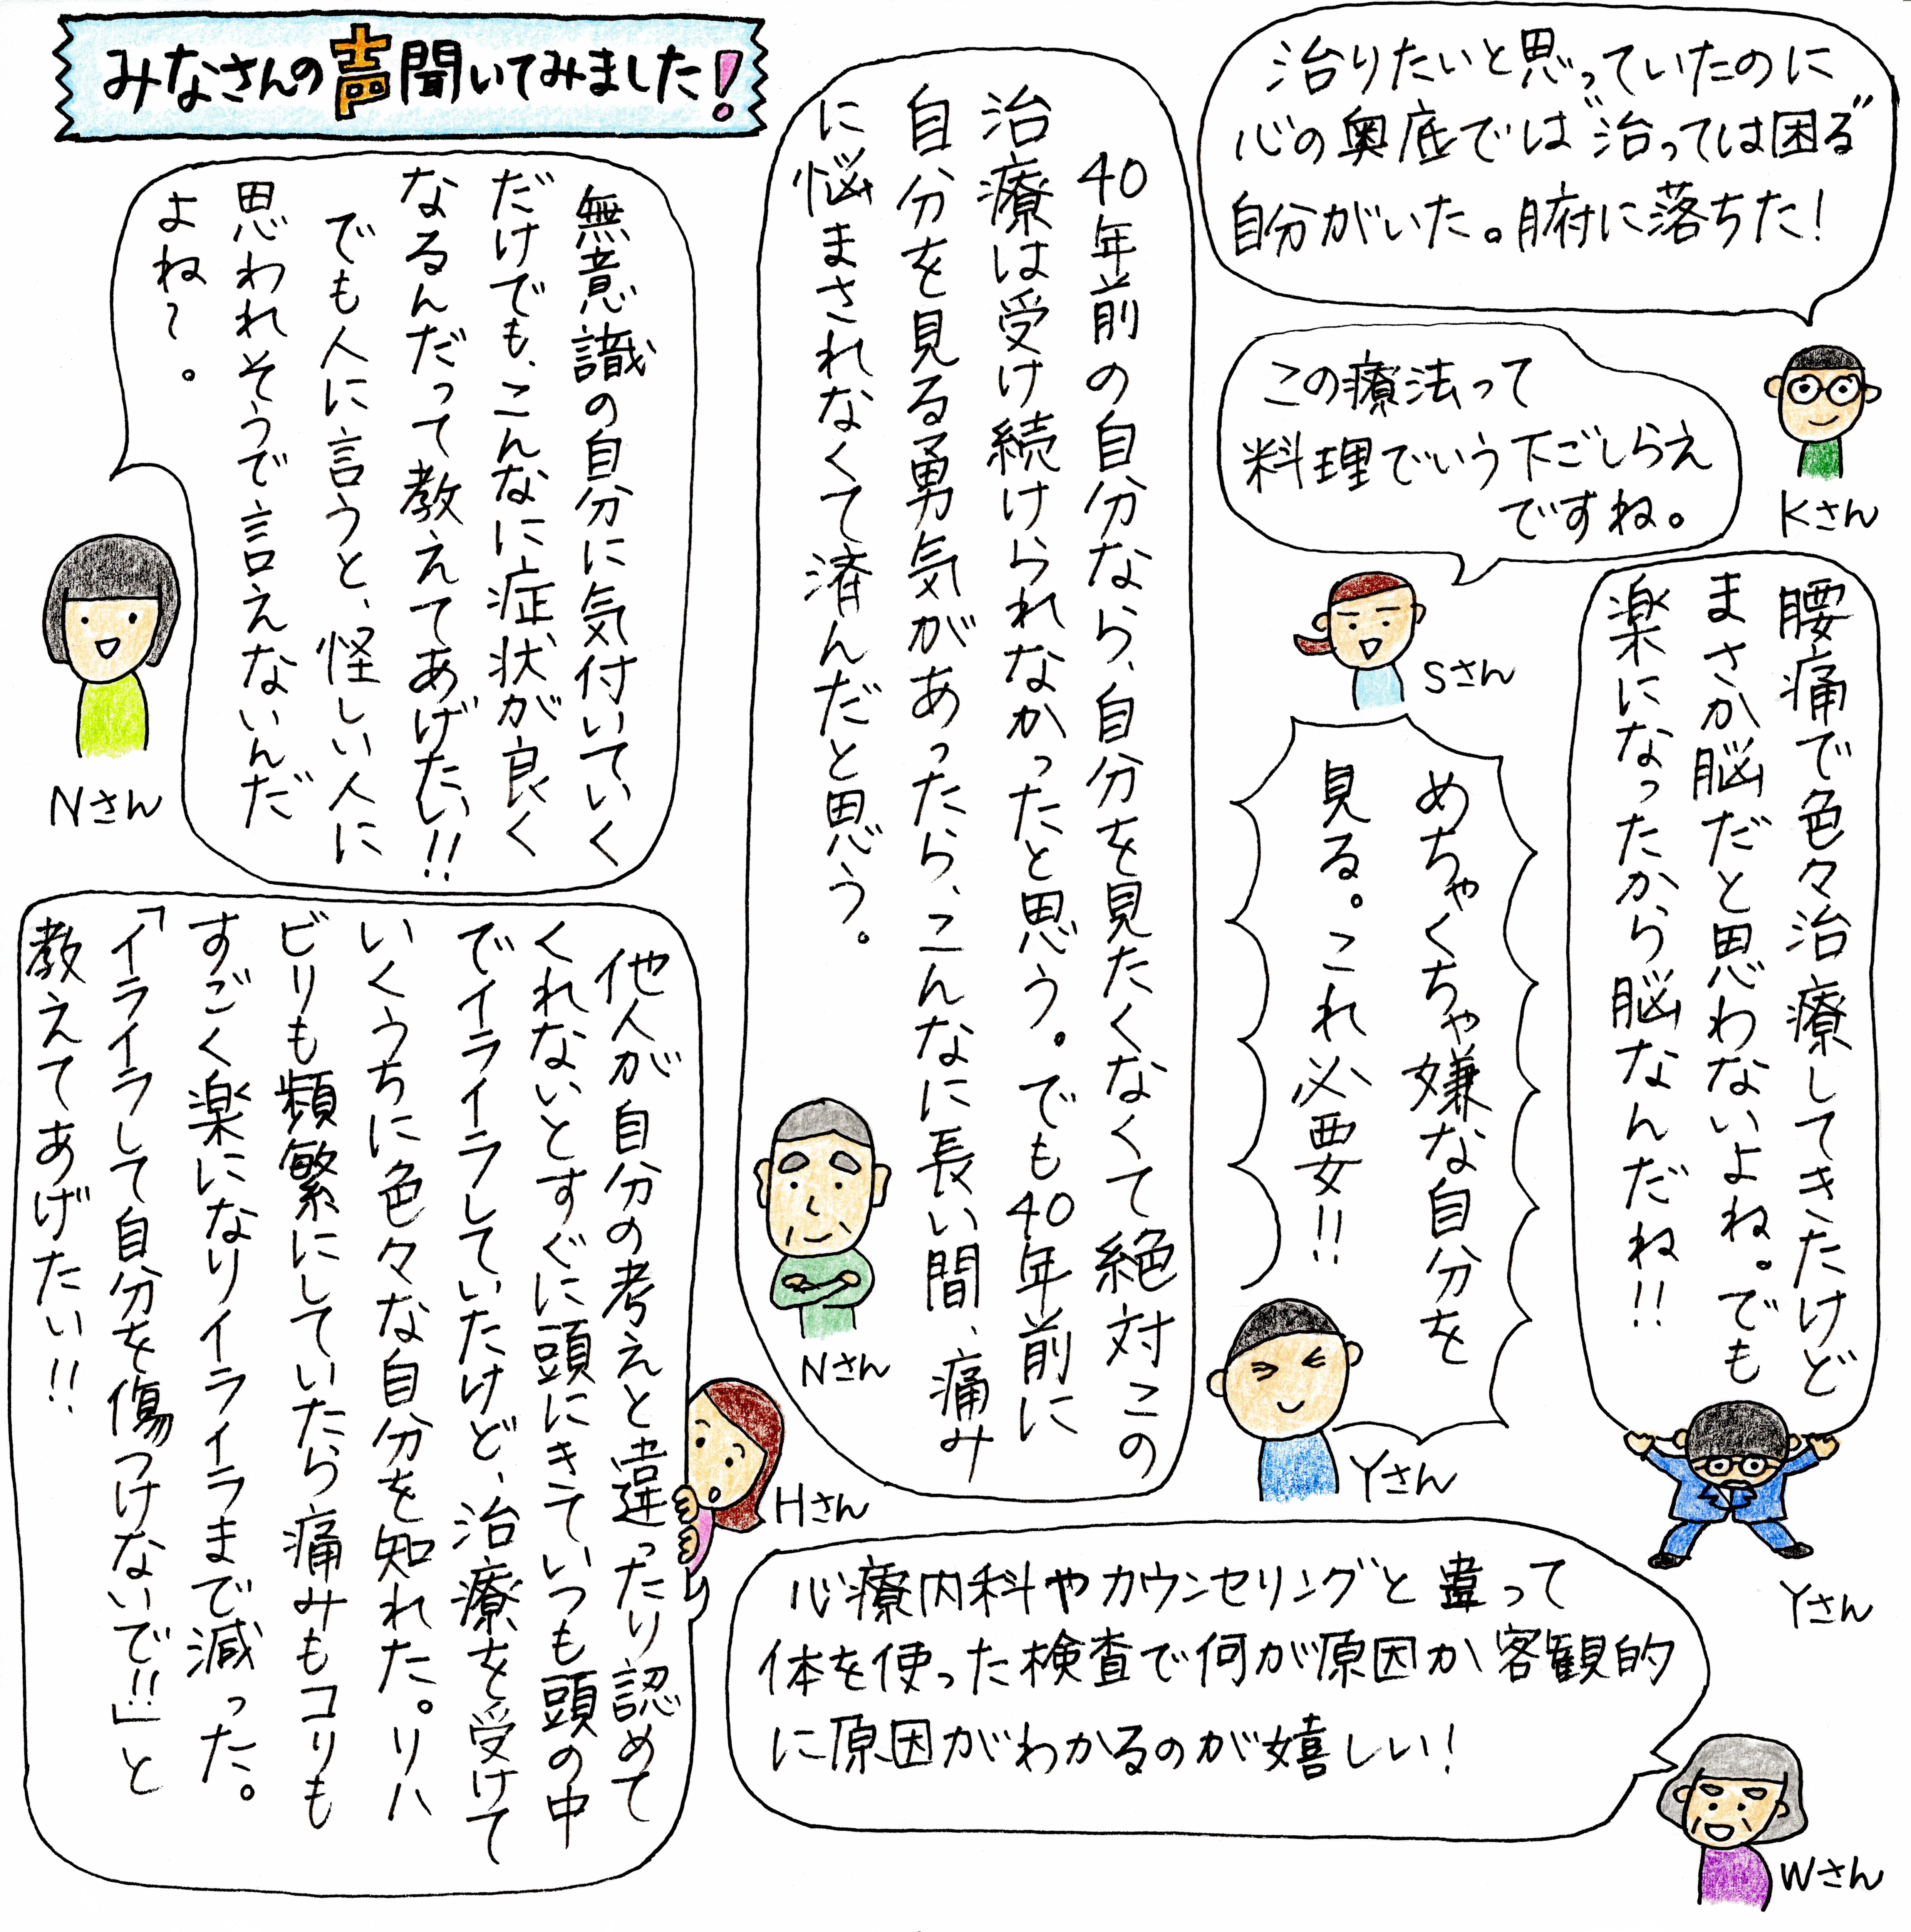 みなさんの声聞いてみました!
治りたいと思っていたのに
心の奥底では"治っては困る"
自分がいた。腑に落ちた!
Kさん
この療法って
料理でいう下ごしらえ
ですね。
Sさん
腰痛で色々治療してきたけど
まさか脳だと思わないよね。でも
楽になったから脳なんだね!!
Yさん
めちゃくちゃ嫌な自分を
見る。これ必要!!
Yさん
40年前の自分なら、自分を見たくなくて絶対この
治療は受け続けられなかったと思う。でも40年前に
自分を見る勇気があったら、こんなに長い間、痛み
に悩まされなくて済んだと思う。
Nさん
無意識の自分に気付いていく
だけでも、こんなに症状が良く
なるんだって教えてあげたい!!
でも人に言うと、怪しい人に
思われそうで言えないんだ
よね〜。
Nさん
他人が自分の考えと違ったり認めて
くれないとすぐに頭にきていつも頭の中
でイライラしていたけど、治療を受けて
いくうちに色々な自分を知れた。リハ
ビリも頻繁にしていたら痛みもコリも
すごく楽になりイライラまで減った。
「イライラして自分を傷つけないで!!」と
教えてあげたい!!
Hさん
心療内科やカウンセリングと違って
体を使った検査で何が原因か客観的
に原因がわかるのが嬉しい!
Wさん